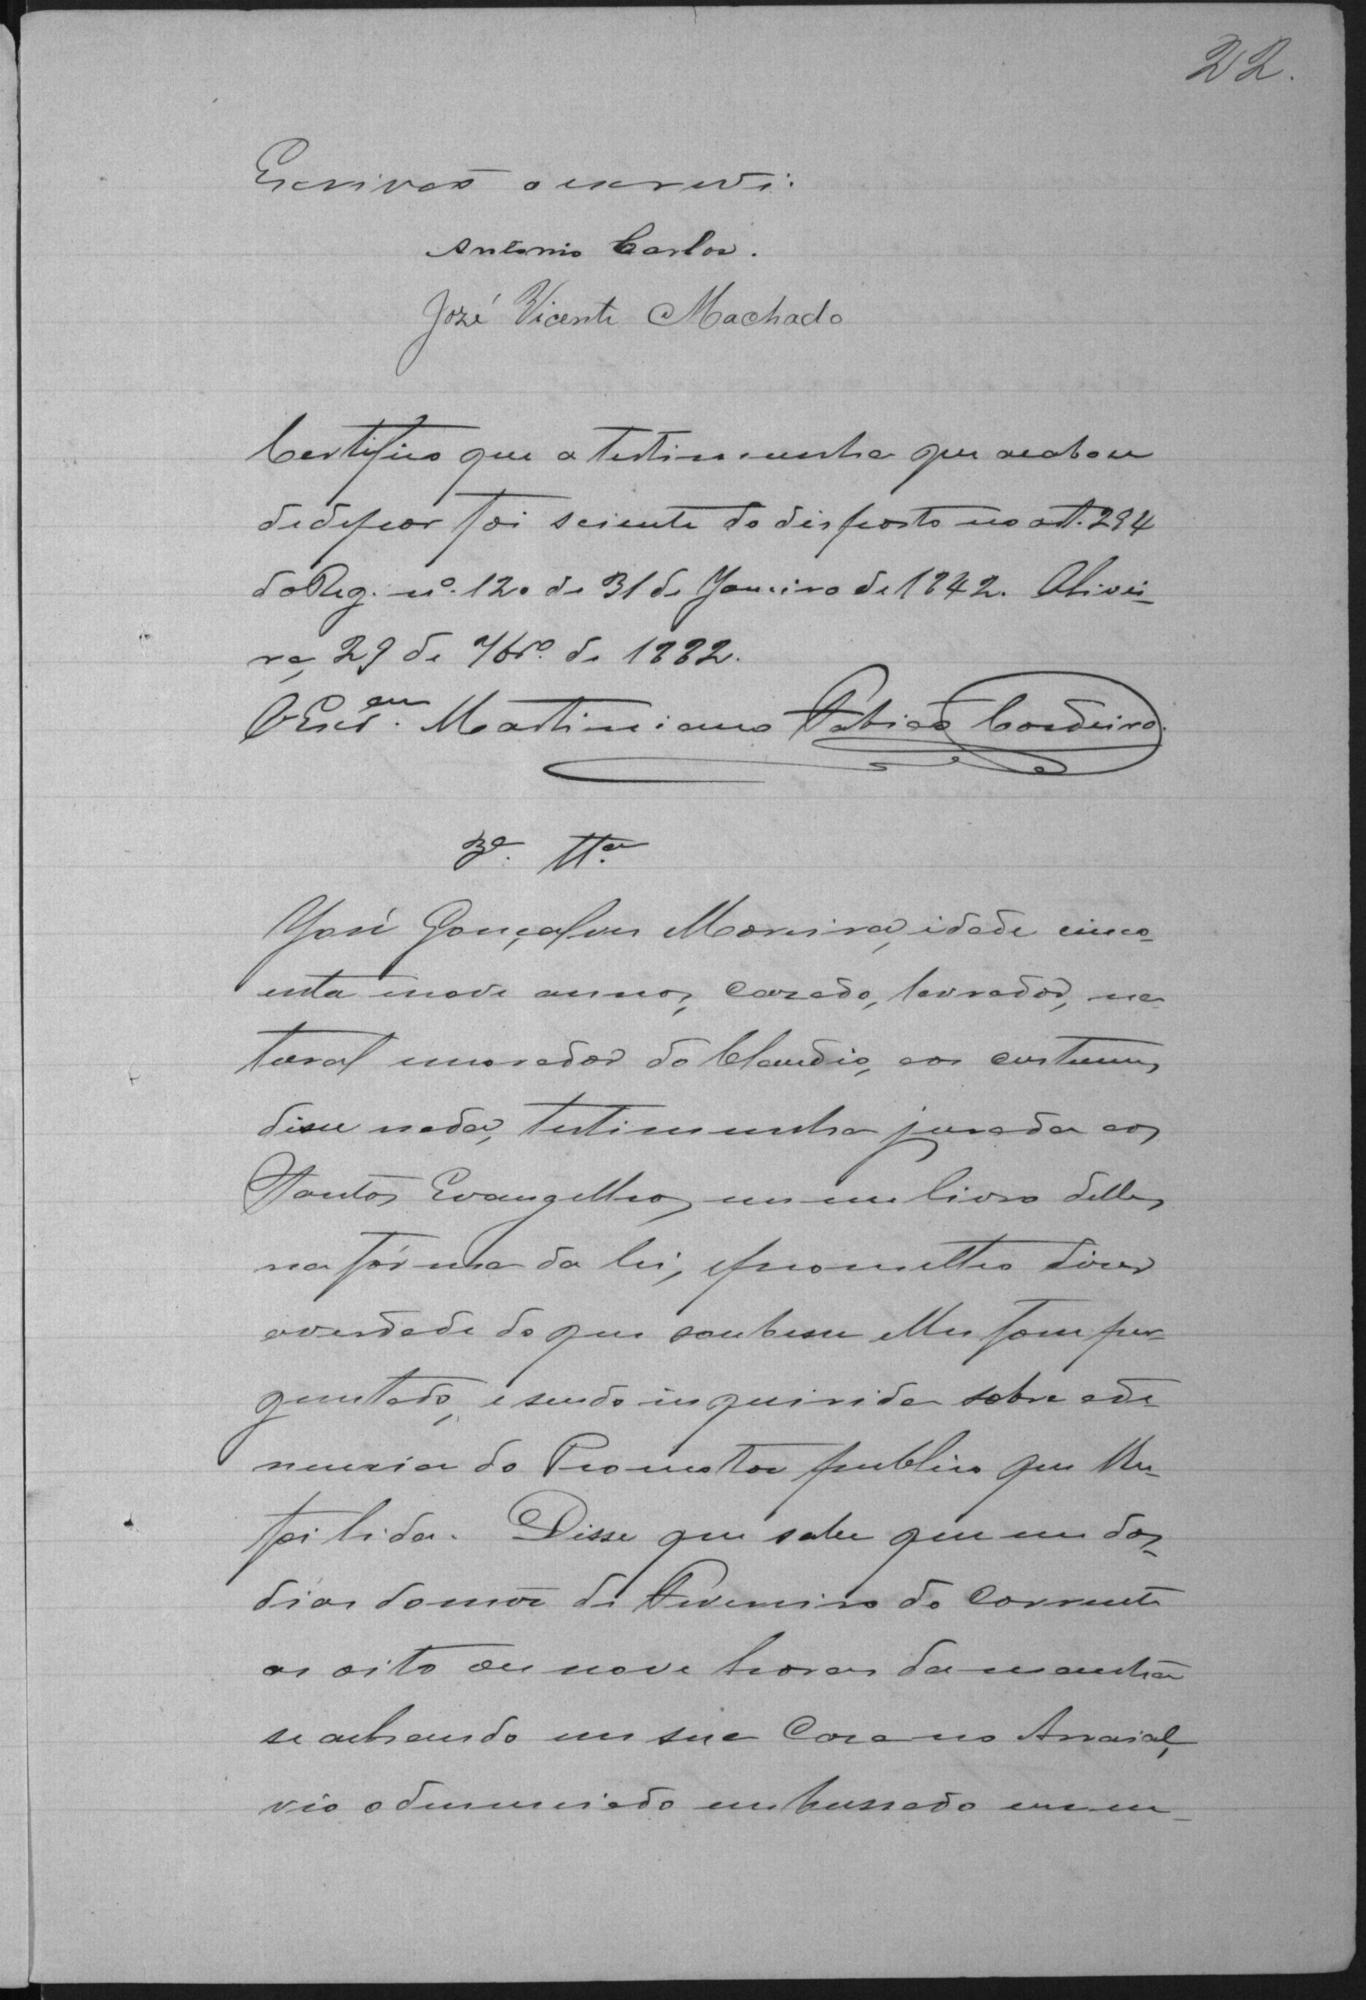 22.
Escrivaõ o escrevi.
Antonio Carlos.
José Vicente Machado
Certifico que a testimunha que acabou
de depor foi sciente do disposto no art. 294
do Reg. nº. 120 de 31 de Janeiro de 1842. Olivei-
ra, 29 de 7brº. de 1882.
O Escr.am Martiniano Fabiaõ Cordeiro.
3ª. Ttª.
José Gonçalves Moreira, idade cinco-
enta e nove annos, cazado, lavrador, na
tural e morador do Claudio, aos costumes
disse nada, testimunha jurada aos
Santos Evangelhos em um livro delles
na fórma da lei, e prometteo dizer
a verdade do que soubesse e lhe fosse per-
guntado, e sendo inquirida sobre a de-
nuncia do Promotor publico que lhe
foi lida. Disse que sabe que em um dos
dias do mez de Fevereiro do corrente
as oito ou nove horas da manhã
se achando em sua Caza no Arraial,
vio o denunciado embussado em um